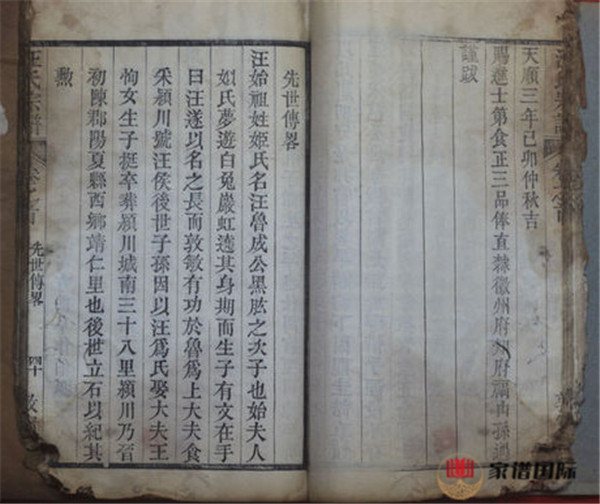 天順三年己卯仲秋吉
賜進士第食正三品俸直隸徽州府知府
孫遇
謹跋
先世傳畧
汪始祖姓姬氏名汪魯成公黑肱之次子也始夫人
姒氏夢遊白兔巖虹遶其身期而生子有文在手
曰汪遂以名之長而敦敏有功於魯爲上大夫食
采潁川號汪侯後世子孫因以汪爲氏娶大夫王
恂女生子挺卒葬潁川城南三十八里潁川乃晉
初陳郡陽夏縣西鄉靖仁里也後世立石以紀其
勲
汪氏宗譜
卷之首
先世傳畧
四十
家谱国际